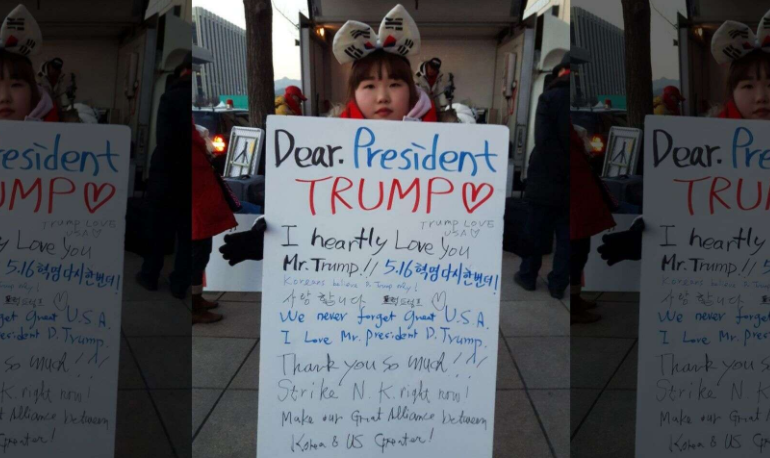 Dear. President
TRUMP♡
Trump LOVE
USA♡
I heartly Love you
Mr. Trump.!! 5.16혁명다시한번더!
Koreans believe D. Trump only!
사랑합니다 트럼프 ♡
We never forget Great U.S.A.
I Love Mr. President D. Trump.
Thank you so much!!
Strike N.K. right now!
Make our Great Alliance between
Korea & US Greater!